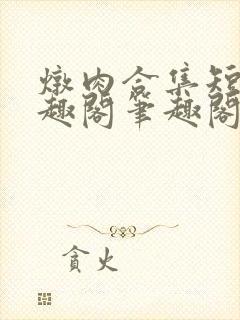 燉肉合集短
趣閣筆趣閣
貪火